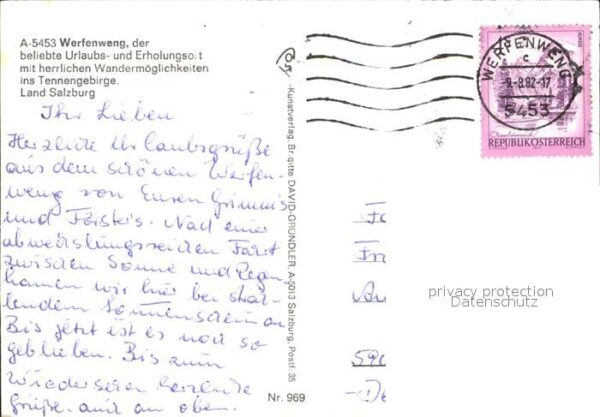 A-5453 Werfenweng, der
beliebte Urlaubs- und Erholungsort
mit herrlichen Wandermöglichkeiten
ins Tennengebirge.
Land Salzburg
Ihr Lieben
Herzliche Urlaubsgrüße
aus dem schönen Werfen-
weng von Euren Grimm's
und Förster's. Nach einer
abwechslungsreichen Fahrt
zwischen Sonne und Regen
kamen wir hier bei strah-
lendem Sonnenschein an
Bis jetzt ist es noch so
geblieben. Bis zum
Wiedersehen herzliche
Grüße auch an oben.
Kunstverlag, Brigitte DAVID-GRÜNDLER, A-5013 Salzburg, Postf. 35
Nr. 969
WERFENWENG
c
9.-8.82-17
5453
REPUBLIK ÖSTERREICH
privacy protection
Datenschutz